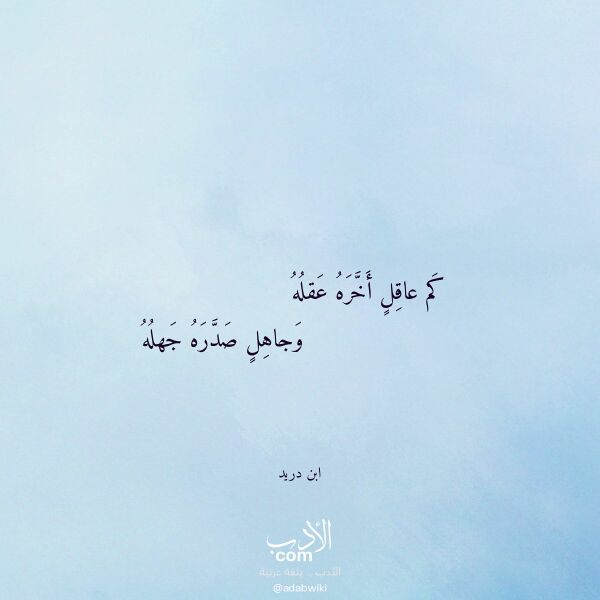 كَم عاقِلٍ أَخَّرَهُ عَقلُهُ
وَجاهِلٍ صَدَّرَهُ جَهلُهُ
ابن دريد
الأدب
com
الأدب .. بلغة عربية
@adabwiki